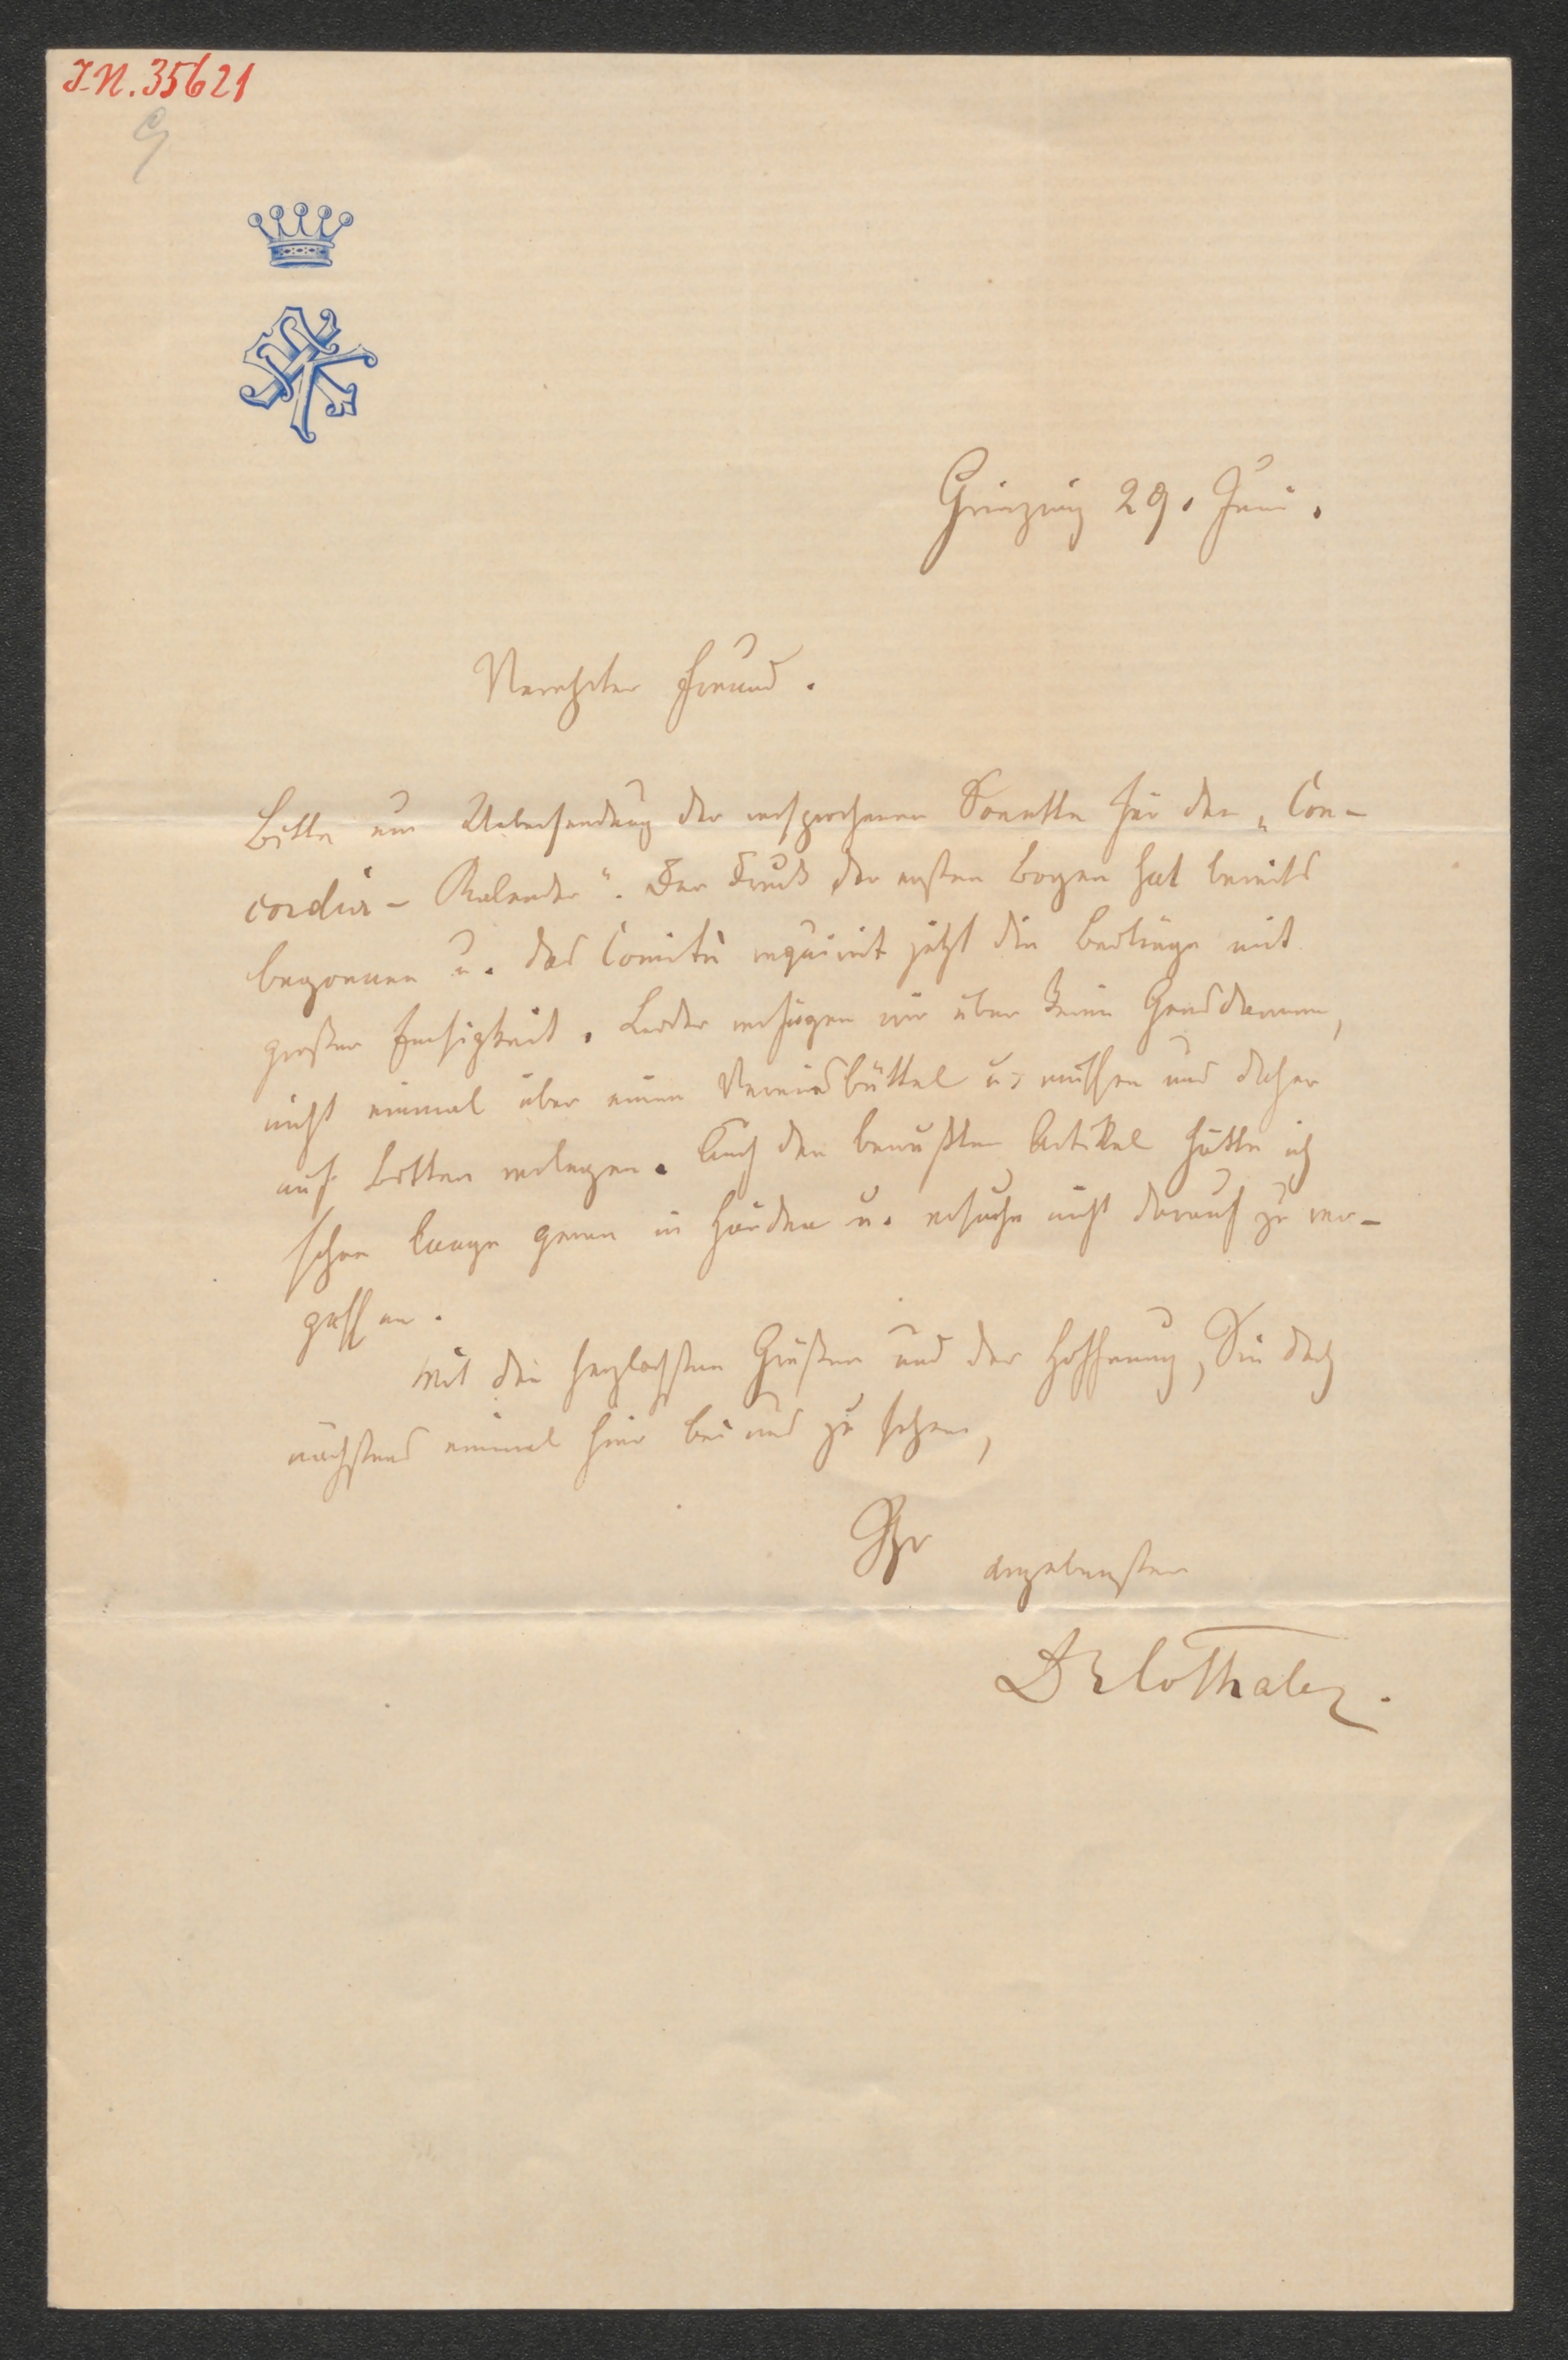 I.N. 35621
Grinzing 29. Juni.
Verehrter Freund.
Bitte um Uebersendung der versprochenen Sonette für den „Con-
cordia-Kalender“. Der Druck der ersten Bogen hat bereits
begonnen u. das Comité requirirt jetzt die Beiträge mit
großer Emsigkeit. Leider verfügen wir über keine Gensdarmen,
nicht einmal über einen Vereinsbüttel u. müssen uns daher
auf Bitten verlegen. Auch den bewußten Artikel hätte ich
schon lange gerne in Händen u. ersuche nicht darauf zu ver-
gessen.
Mit den herzlichsten Grüßen und der Hoffnung, Sie doch
nächstens einmal hier bei uns zu sehen,
Ihr ergebenster
Dr Lothar.